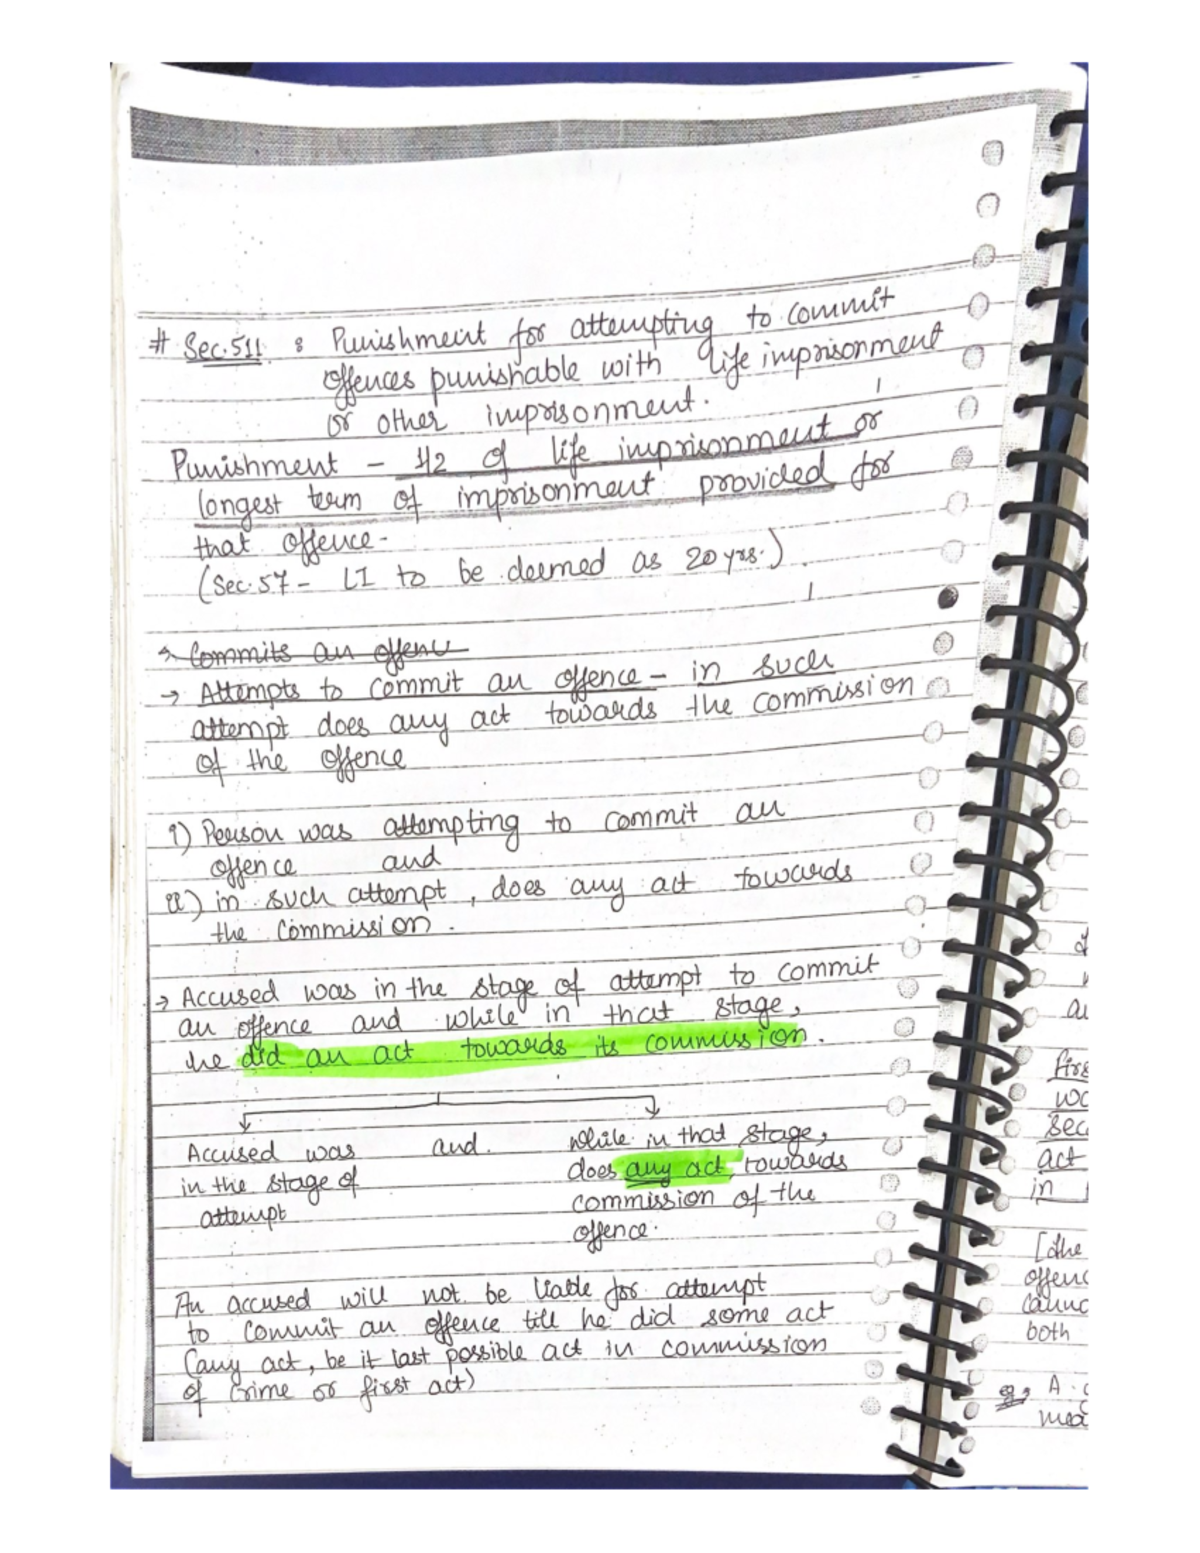 # Sec.511 : Punishment for attempting to commit
offences punishable with life imprisonment
or other imprisonment.
Punishment - 1/2 of life imprisonment or
longest term of imprisonment provided for
that offence.
(Sec.57 - LI to be deemed as 20 yrs.)
→ Commits an offence
→ Attempts to commit an offence - in such
attempt does any act towards the commission
of the offence
i) Person was attempting to commit an
offence and
ii) in such attempt, does any act towards
the commission.
→ Accused was in the stage of attempt to commit
an offence and while in that stage,
he did an act towards its commission.
Accused was and while in that stage,
in the stage of does any act towards
attempt commission of the
offence.
An accused will not be liable for attempt
to commit an offence till he did some act
(any act, be it last possible act in commission
of crime or first act)
firs
wo
sec
act
in
[the
offenc
canno
both
eg, A
mea